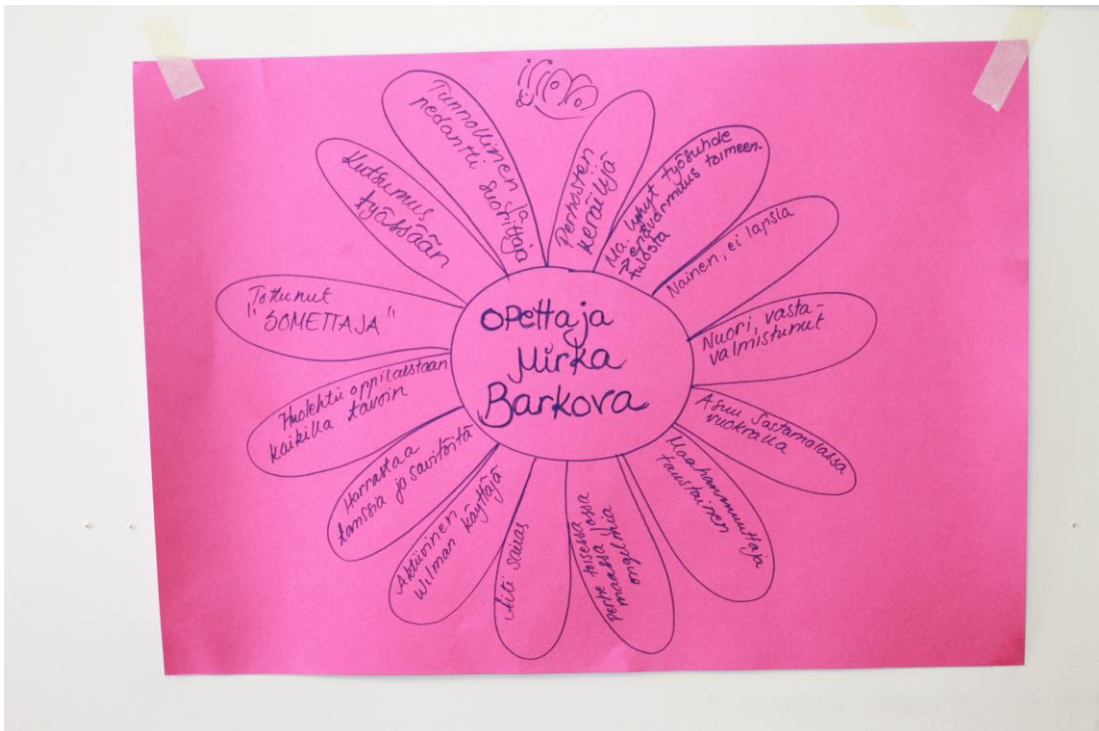 Opettaja
Mirka
Barkova
Perhosten
keräilijä
Ma. lyhyt työsuhde
→ epävarmuus toimeen-
tulosta
Nainen, ei lapsia
Nuori, vasta-
valmistunut
Asuu Sastamalassa
vuokralla
Maahanmuuttaja
taustainen
perhe toisessa
maassa jossa
ongelmia
Äiti sairas
Aktiivinen
Wilman käyttäjä
Harrastaa
tanssia ja savitöitä
Huolehtii oppilaistaan
kaikilla tavoin
Tottunut
"SOMETTAJA"
Kutsumus
työssään
Tunnollinen ja
pedantti suorittaja